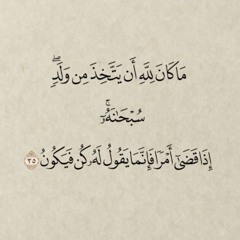 مَا كَانَ لِلَّهِ أَن يَتَّخِذَ مِن وَلَدٍۖ
سُبْحَانَهُۥٓۚ
إِذَا قَضَىٰٓ أَمْرًا فَإِنَّمَا يَقُولُ لَهُۥ كُن فَيَكُونُ ٣٥